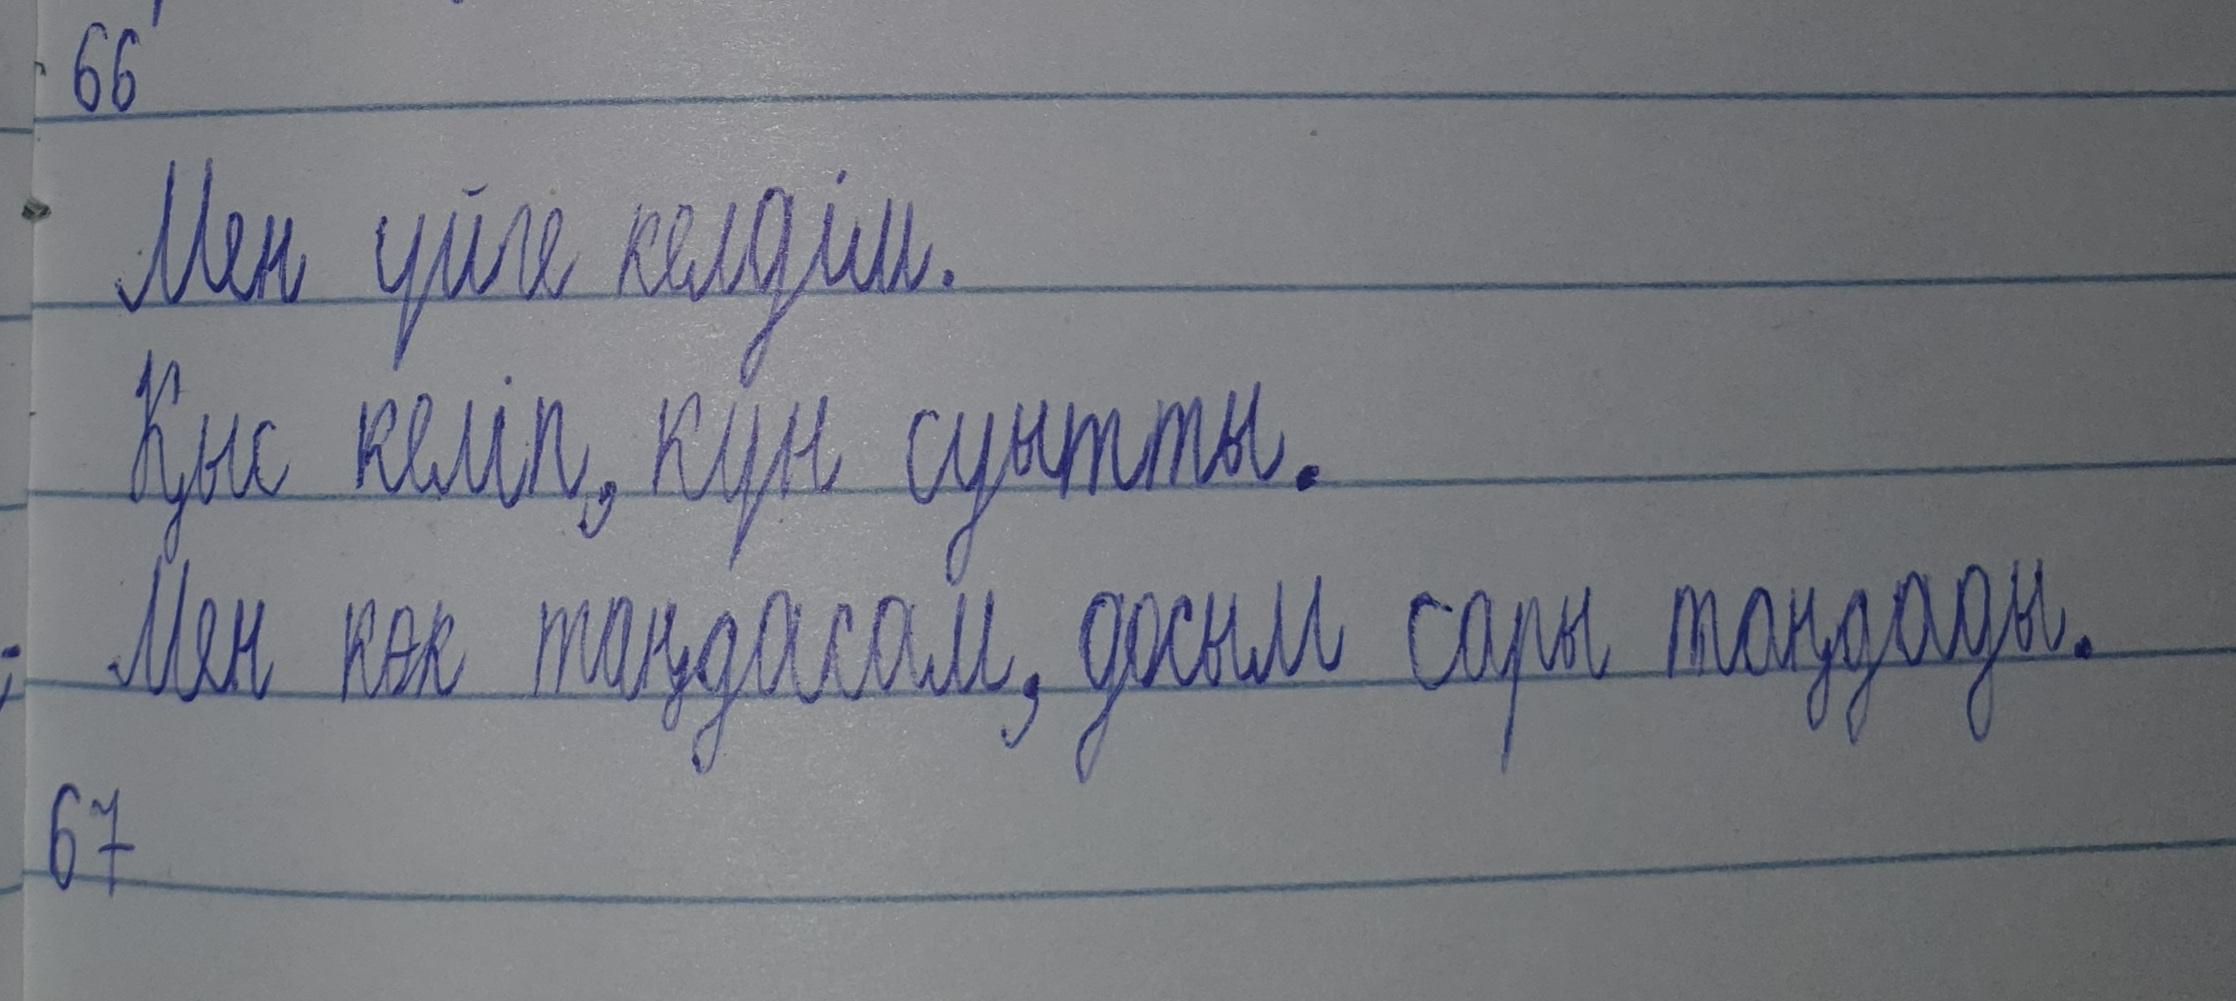 66
Мен үйге келдім.
Қыс келіп, күн суытты.
Мен көк таңдасам, досым сары таңдады.
67